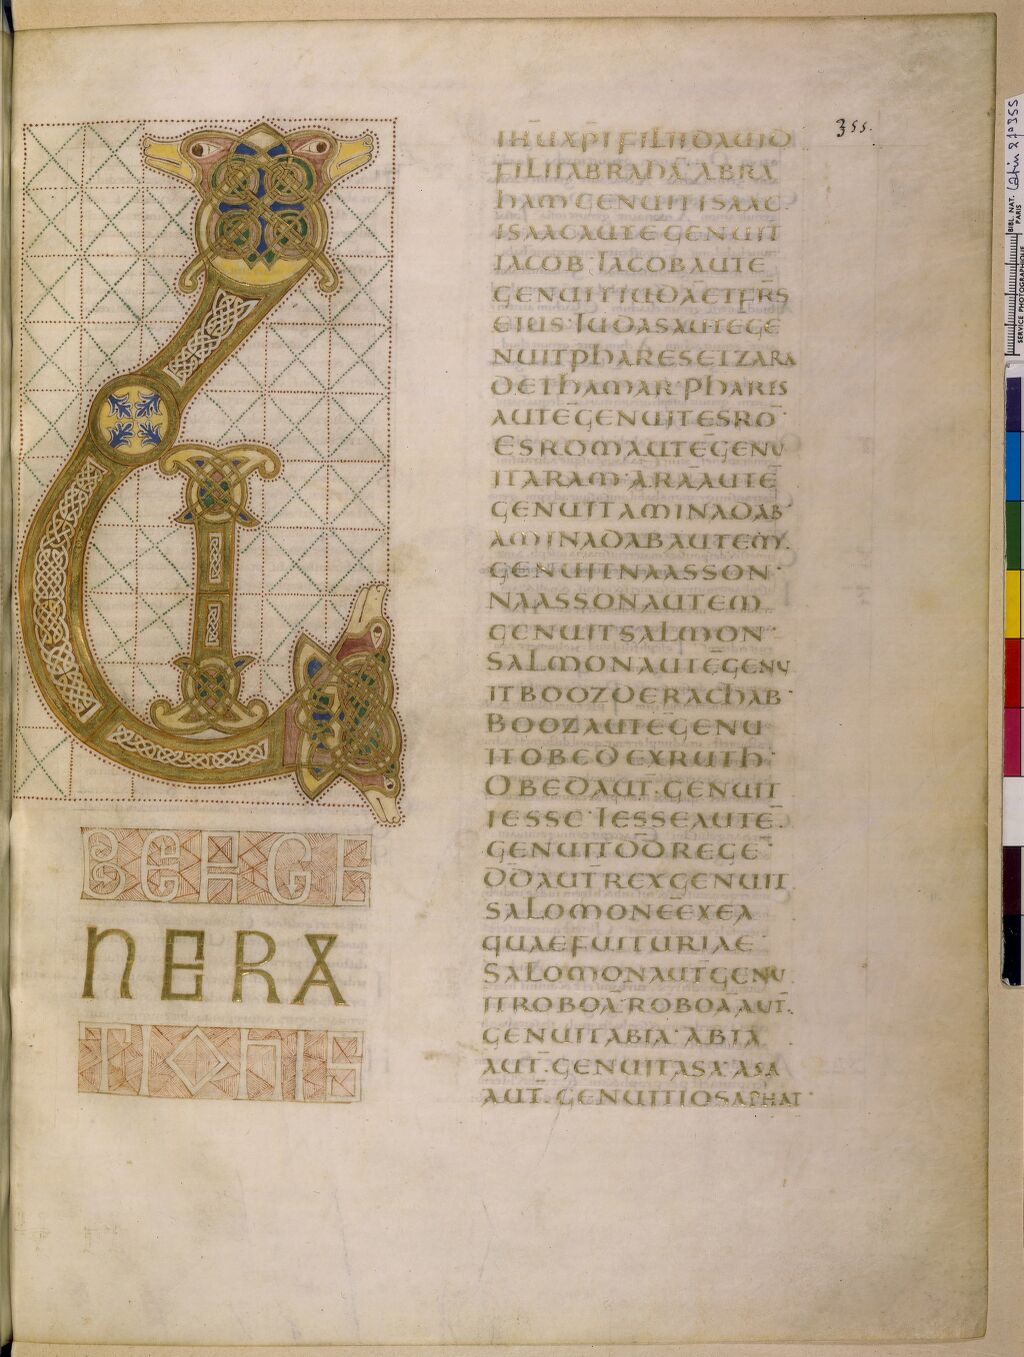 LI
BERGE
NERA
TIONE
355.
IHŪXPĪFILIIDAUID
FILIIABRAHĀ·ABRA
HAMGENUITISAAC·
ISAACAUTEGENUIT
IACOB·IACOBAUTE
GENUITIUDĀETFR̄S
EIUS·IUDASAUTEGE
NUITPHARESETZARA
DETHAMAR·PHARES
AUTĒGENUITESRŌ·
ESROMAUTĒGENU
ITARAM·ARĀAUTĒ
GENUITAMINADAB·
AMINADABAUTEM
GENUITNAASSON·
NAASSONAUTEM
GENUITSALMON·
SALMONAUTĒGENU
ITBOOZDERACHAB·
BOOZAUTĒGENU
ITOBEDEXRUTH·
OBEDAUT̄·GENUIT
IESSE·IESSEAUTĒ·
GENUITD̄D̄REGE·
D̄D̄AUT̄REXGENUIT
SALOMONĒEXEA
QUAEFUITURIAE·
SALOMONAUT̄GENU
ITROBOĀ·ROBOĀAUT̄·
GENUITABIA·ABIA
AUT̄·GENUITASA·ASA
AUT̄·GENUITIOSAPHAT·
BIBL. NAT. PARIS
Latin 281 fo 355
SERVICE PHOTOGRAPHIQUE